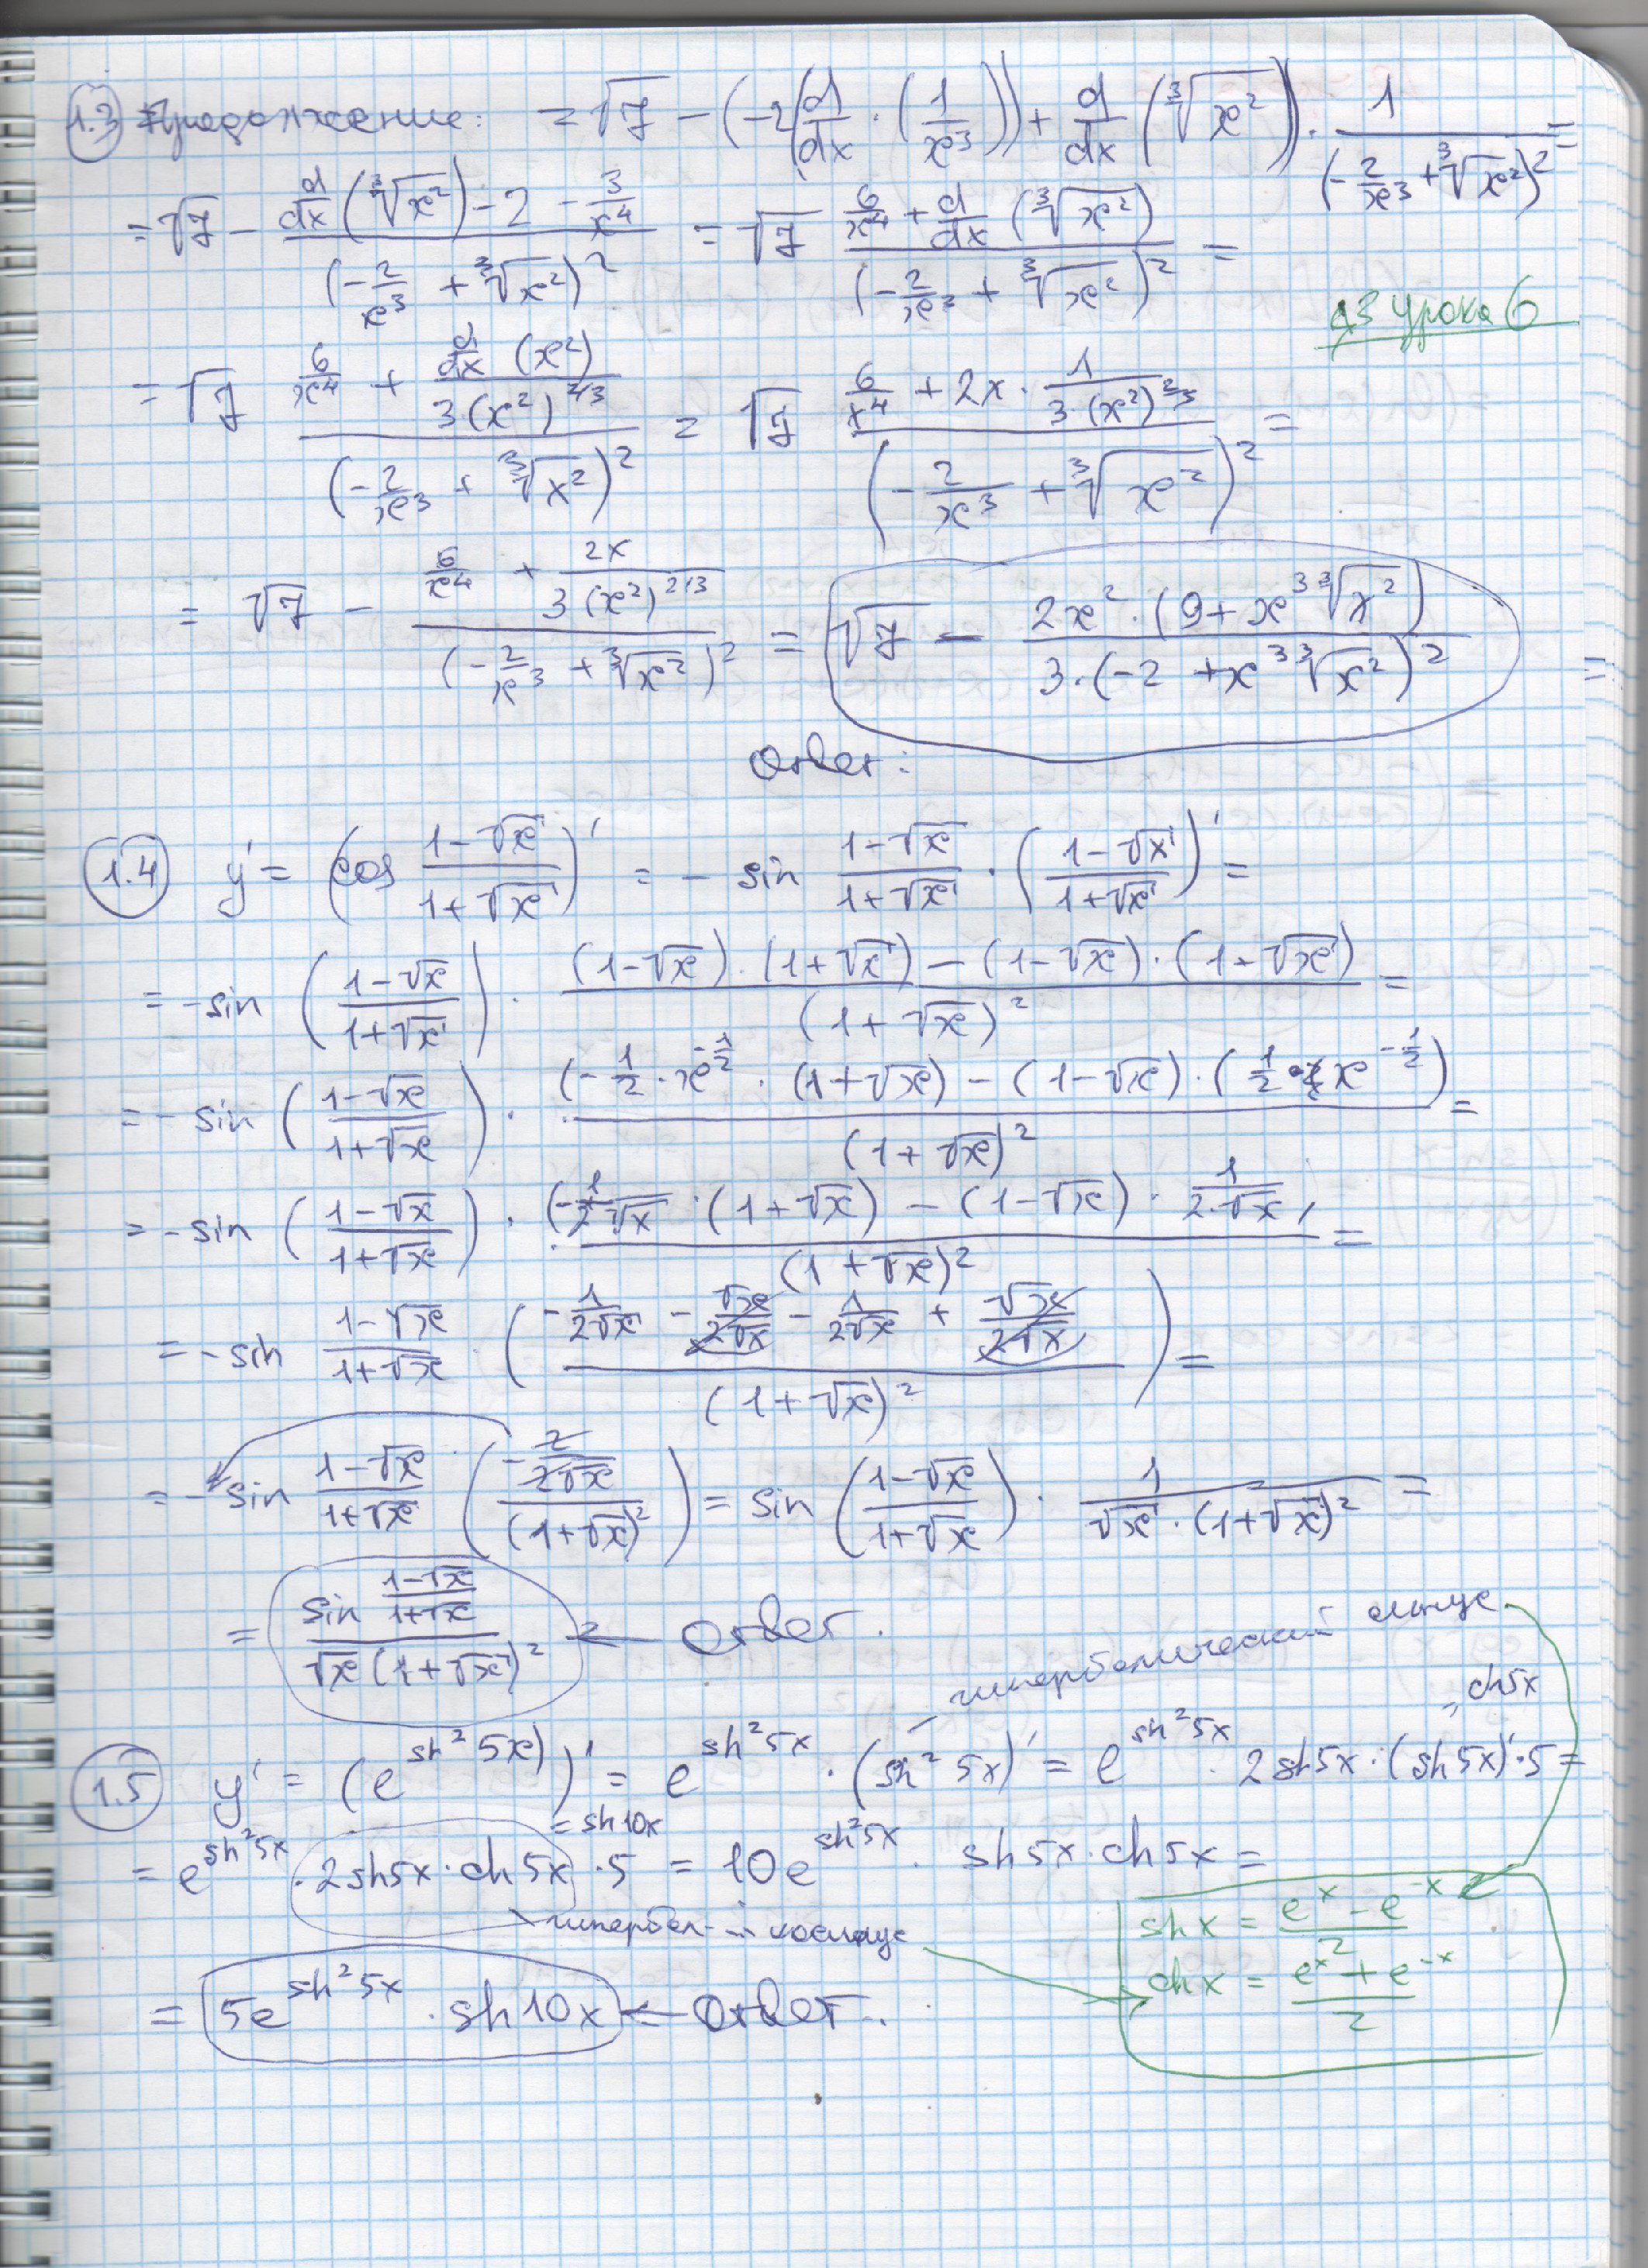 1.3 Продолжение: = √7 − (−2(d/dx · (1/x³)) + d/dx (∛x²)) · 1/(−2/x³ + ∛x²)² =
= √7 − (d/dx (∛x²) − 2 − 3/x⁴)/(−2/x³ + ∛x²)² = √7 (6/x⁴ + d/dx (∛x²))/(−2/x³ + ∛x²)² =
ДЗ Урока 6
= √7 (6/x⁴ + (d/dx (x²))/(3(x²)^(2/3)))/(−2/x³ + ∛x²)² = √7 (6/x⁴ + 2x · 1/(3·(x²)^(2/3)))/(−2/x³ + ∛x²)² =
= √7 − (6/x⁴ + 2x/(3(x²)^(2/3)))/(−2/x³ + ∛x²)² = √7 − (2x² · (9 + x³ ∛x²))/(3·(−2 + x³ ∛x²)²) =
Ответ:
1.4 y' = (cos (1−√x)/(1+√x))' = − sin (1−√x)/(1+√x) · ((1−√x)/(1+√x))' =
= −sin ((1−√x)/(1+√x)) · ((1−√x) · (1+√x) − (1−√x) · (1+√x))/(1+√x)² =
= −sin ((1−√x)/(1+√x)) · ((−1/2 · x^(−1/2) · (1+√x) − (1−√x) · (1/2 · x^(−1/2)))/(1+√x)² =
= −sin ((1−√x)/(1+√x)) · ((−1/(2√x) · (1+√x) − (1−√x) · 1/(2·√x))/(1+√x)² =
= −sin (1−√x)/(1+√x) · ((−1/(2√x) − √x/(2√x) − 1/(2√x) + √x/(2√x))/(1+√x)²) =
= −sin (1−√x)/(1+√x) · ((−2/(2√x))/(1+√x)²) = sin ((1−√x)/(1+√x)) · 1/(√x · (1+√x)²) =
= (sin (1−√x)/(1+√x))/(√x (1+√x)²) ← Ответ.
гиперболический синус
ch5x
1.5 y' = (e^(sh² 5x))' = e^(sh² 5x) · (sh² 5x)' = e^(sh² 5x) · 2sh5x · (sh5x)' · 5 =
= sh10x
= e^(sh² 5x) · 2sh5x · ch5x · 5 = 10e^(sh² 5x) · sh5x · ch5x =
гипербол-й косинус
shx = (e^x − e^(−x))/2
chx = (e^x + e^(−x))/2
= 5e^(sh² 5x) · sh10x ← Ответ.